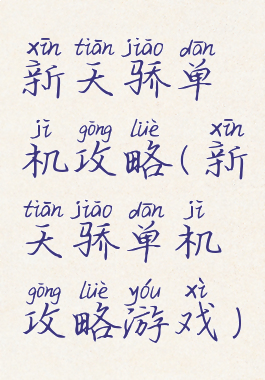 xīn tiān jiāo dān
新天骄单
jī gōng lüè xīn
机攻略(新
tiān jiāo dān jī
天骄单机
gōng lüè yóu xì
攻略游戏)